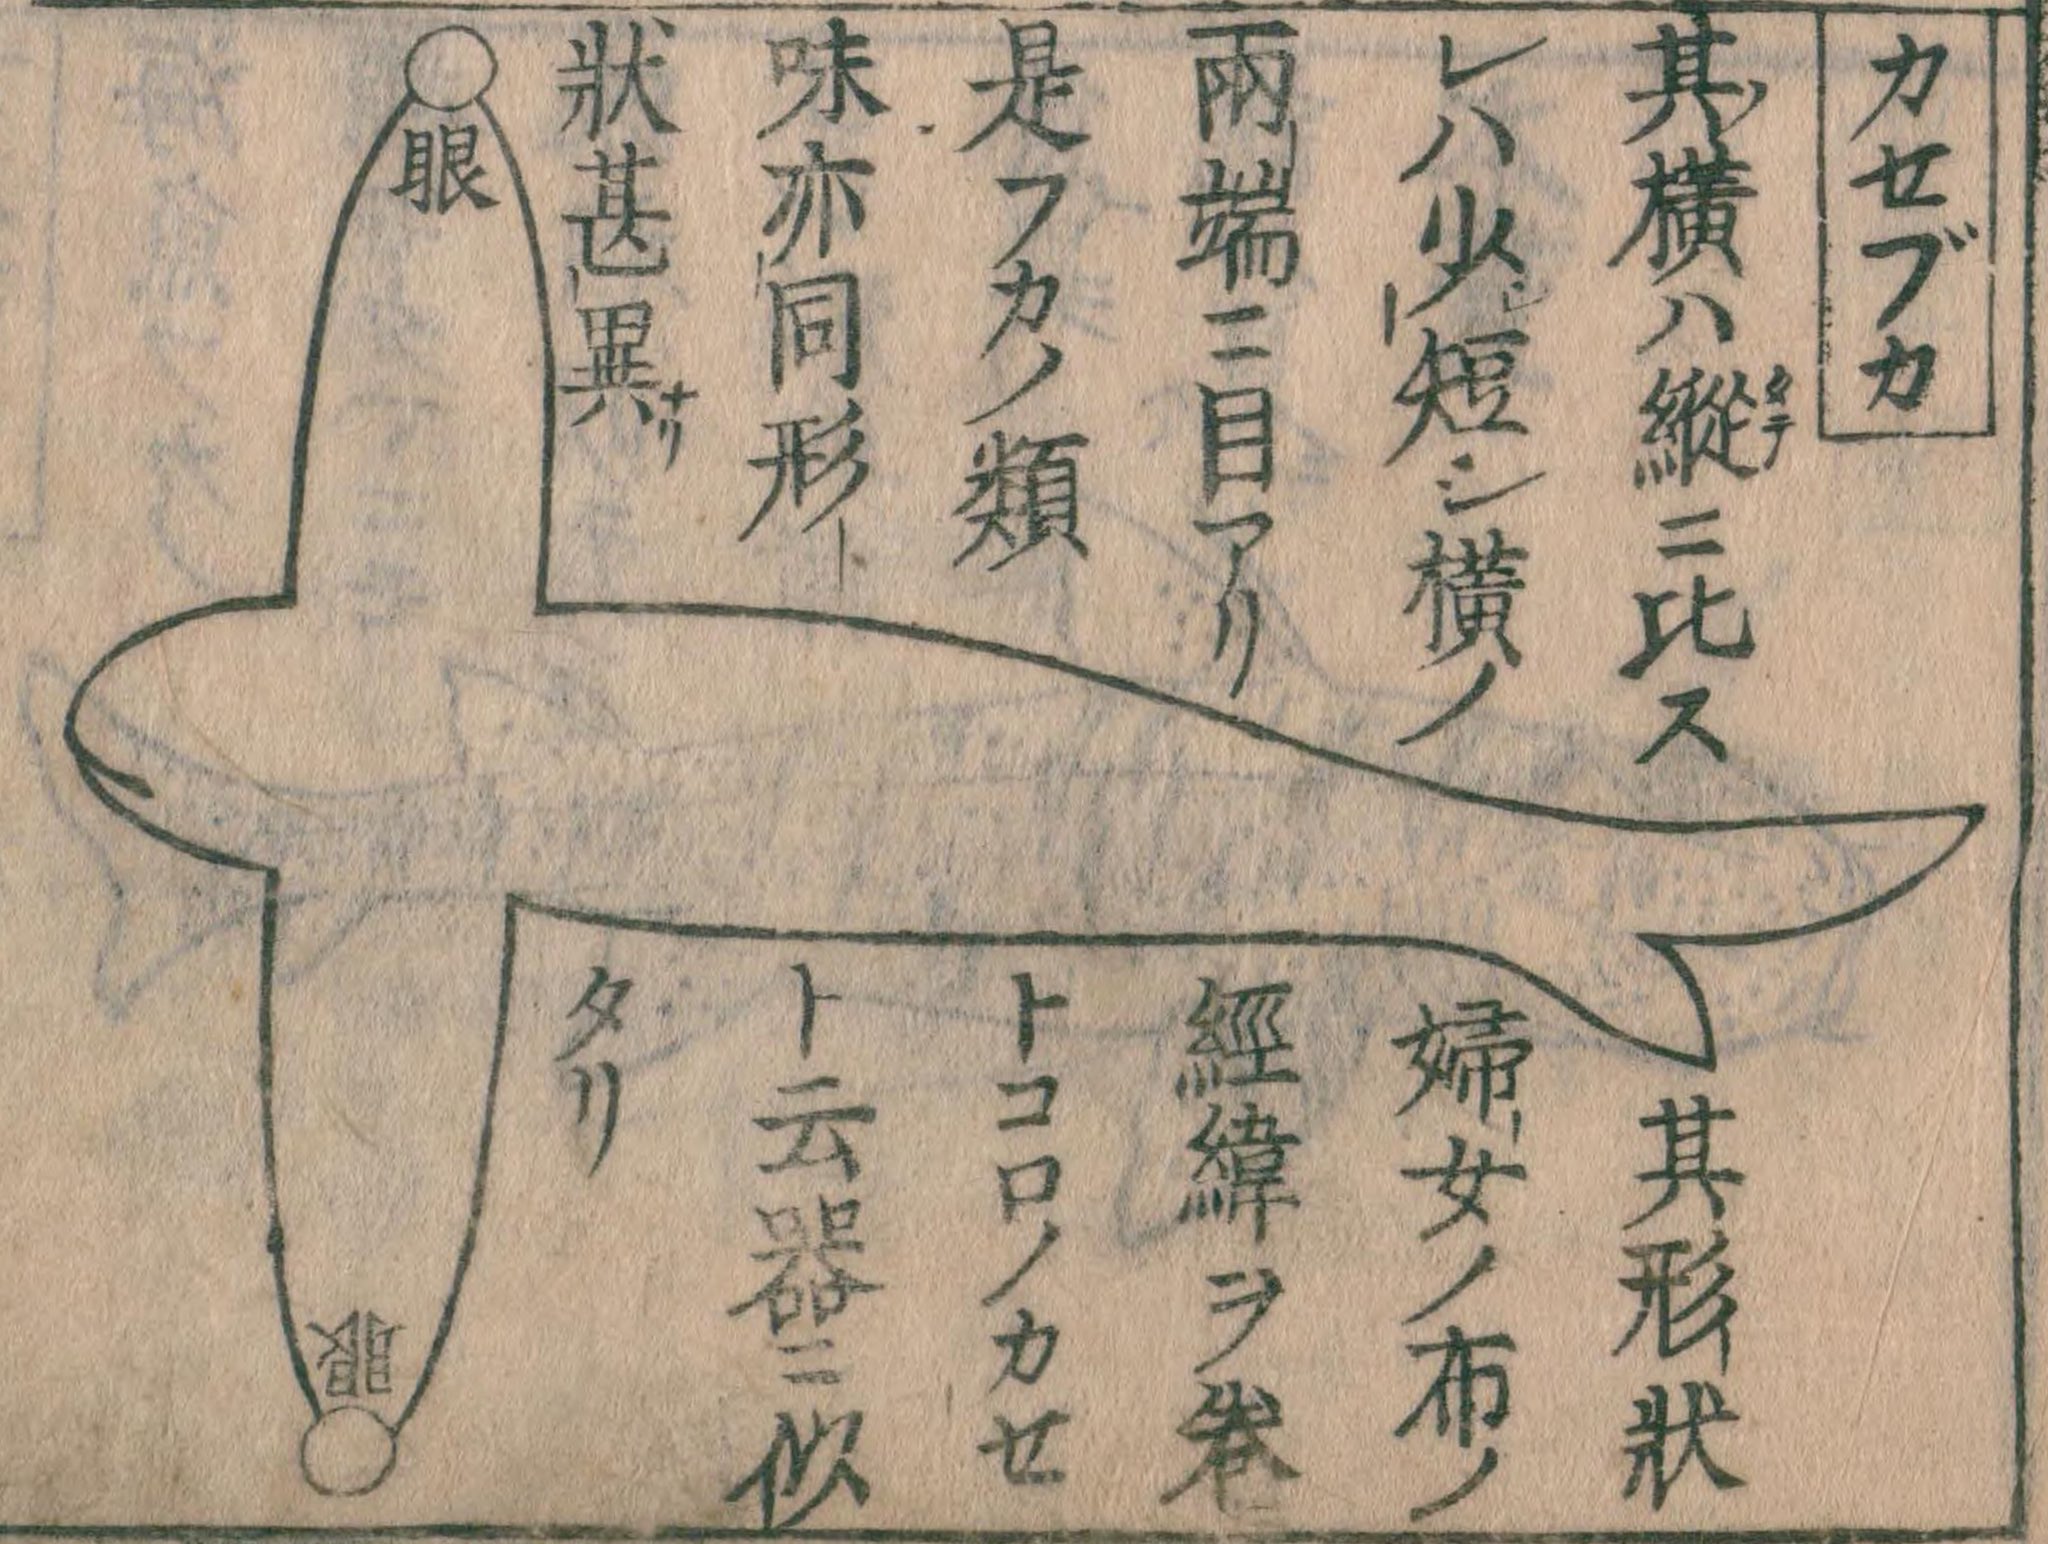 カせブカ
其ノ横ハ縱ニ比ス
レハ少シ短シ横ノ
兩端ニ目アリ
是フカノ類
味亦同形
狀甚異ナリ
其形狀
婦女ノ布ノ
經緯ヲ卷
トコロノカせ
ト云器ニ似
タリ
眼
眼